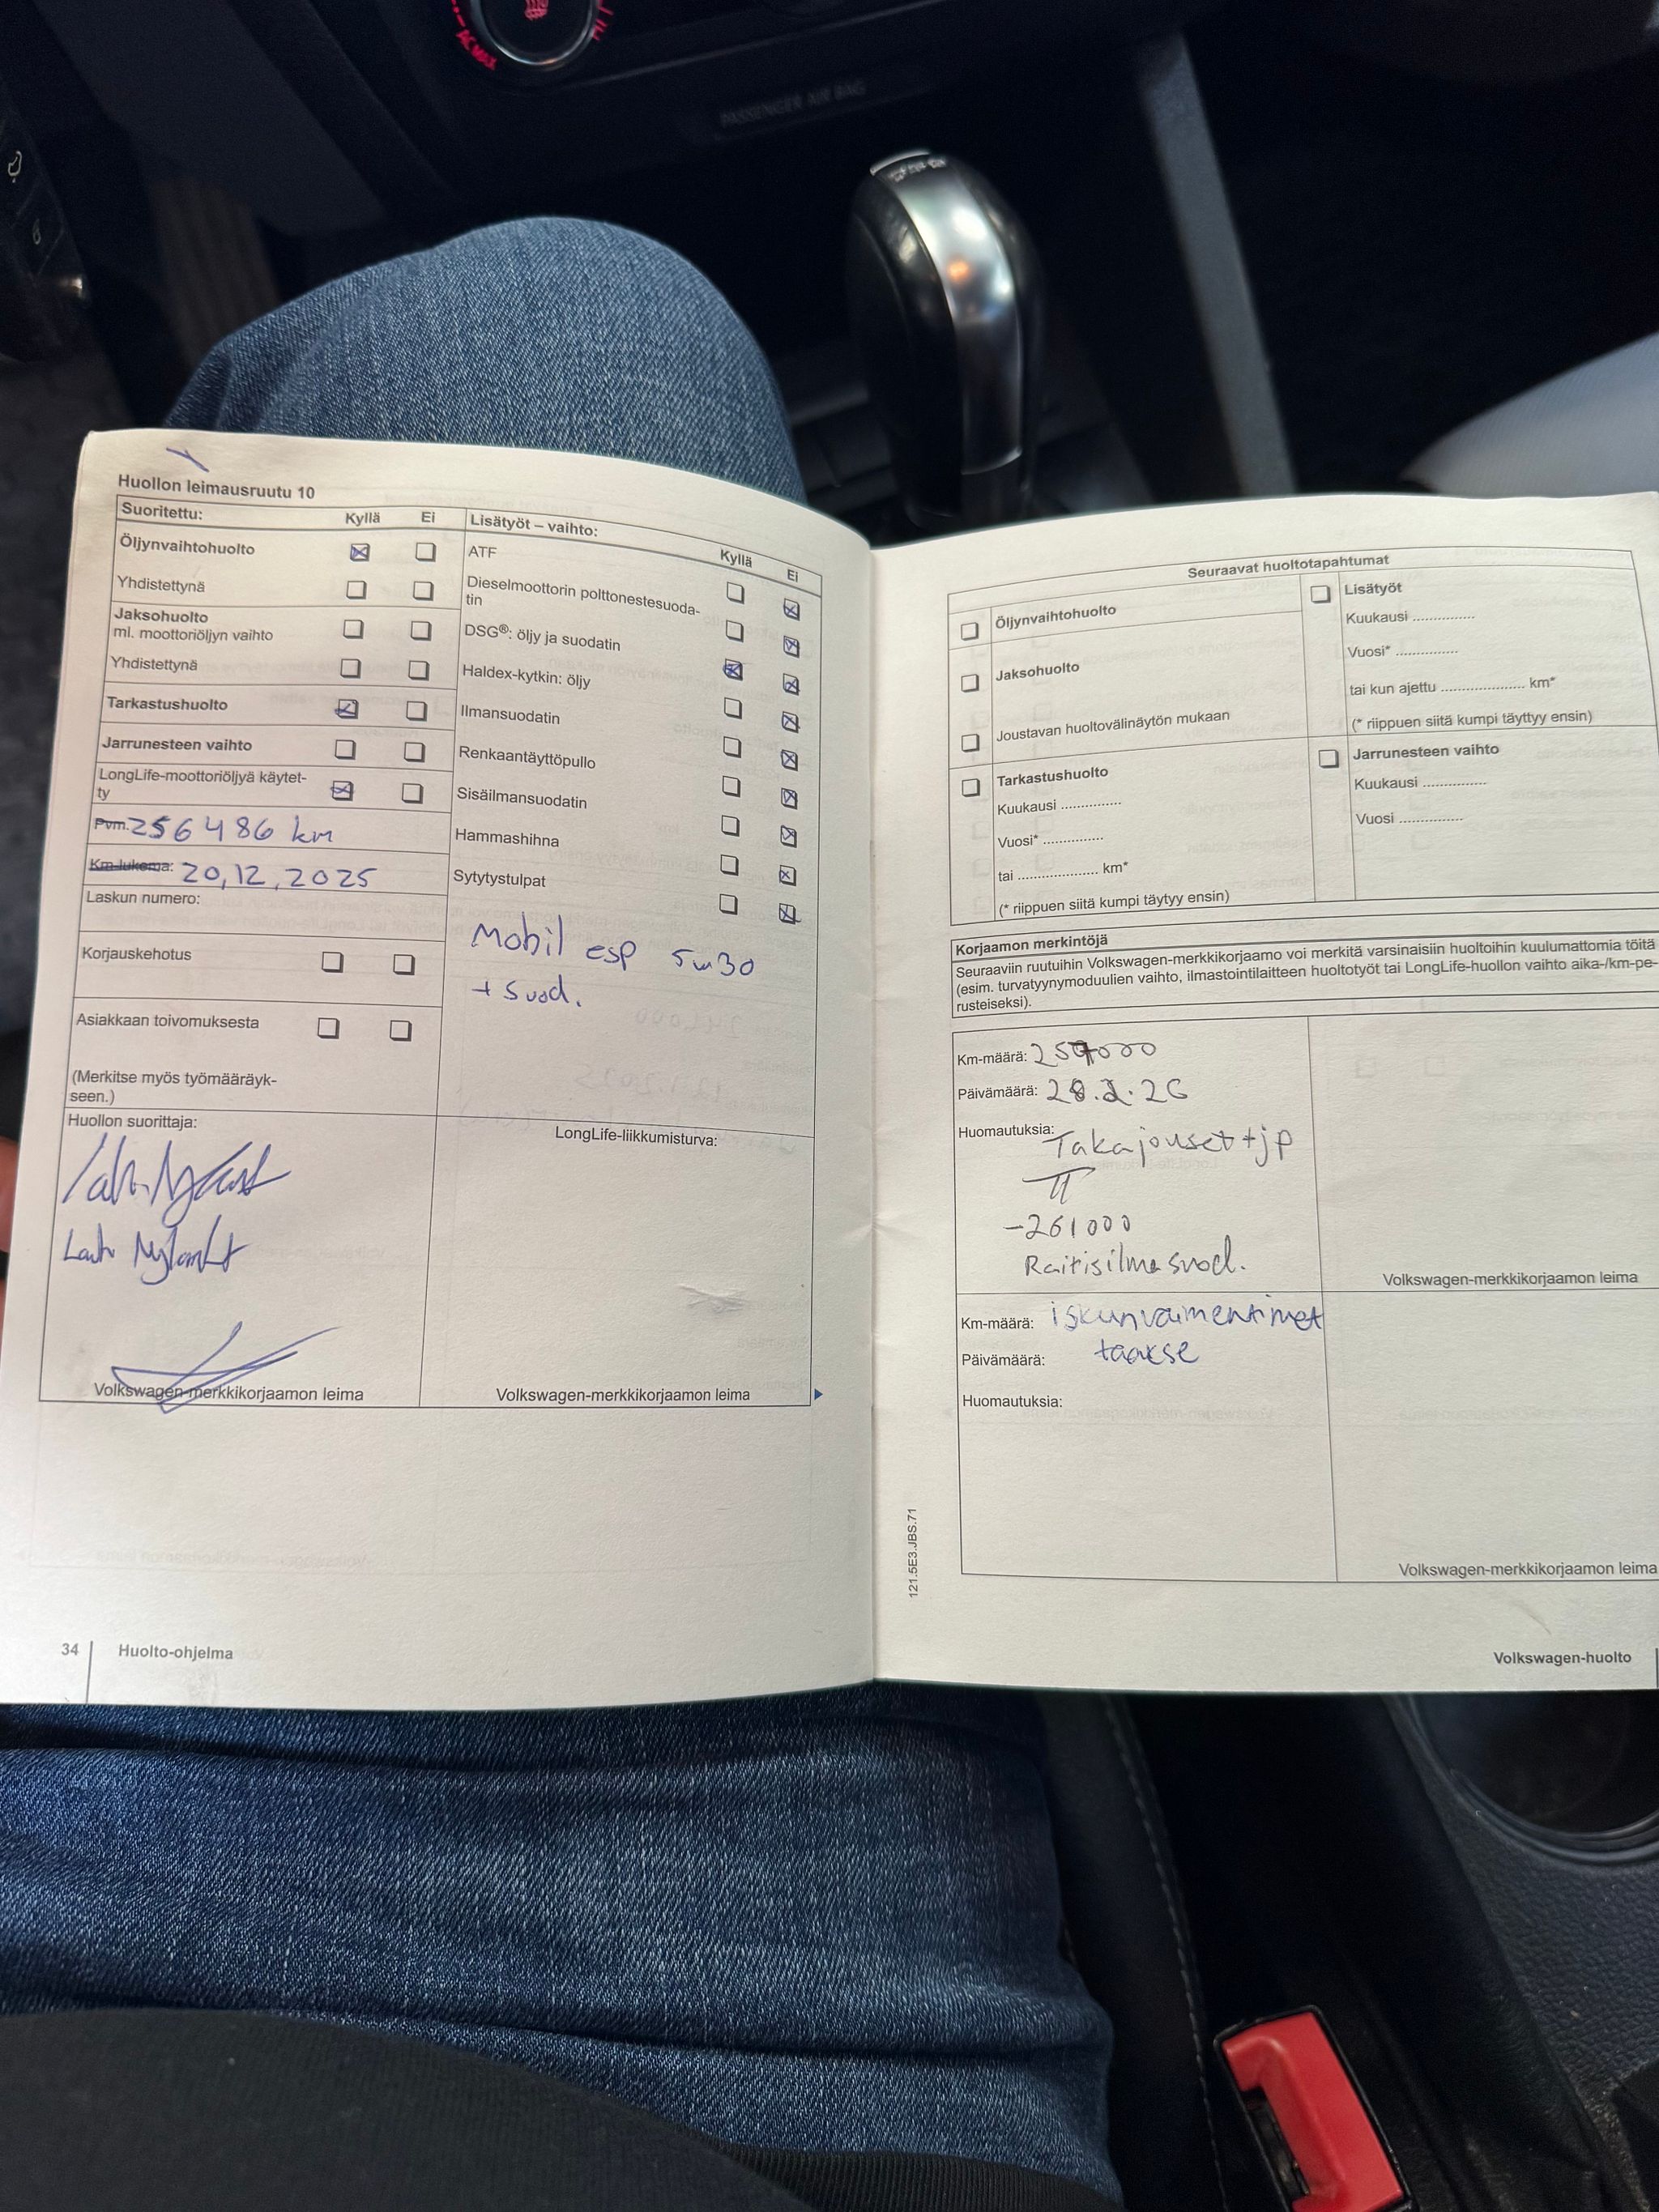 AC MAX
PASSENGER AIR BAG
Huollon leimausruutu 10
Suoritettu: Kyllä Ei
Öljynvaihtohuolto
Yhdistettynä
Jaksohuolto
ml. moottoriöljyn vaihto
Yhdistettynä
Tarkastushuolto
Jarrunesteen vaihto
LongLife-moottoriöljyä käytet-
ty
Pvm. 256486 km
Km-lukema: 20,12,2025
Laskun numero:
Korjauskehotus
Asiakkaan toivomuksesta
(Merkitse myös työmääräyk-
seen.)
Huollon suorittaja:
Volkswagen-merkkikorjaamon leima
Lisätyöt – vaihto: Kyllä Ei
ATF
Dieselmoottorin polttonestesuoda-
tin
DSG®: öljy ja suodatin
Haldex-kytkin: öljy
Ilmansuodatin
Renkaantäyttöpullo
Sisäilmansuodatin
Hammashihna
Sytytystulpat
Mobil esp 5w30
+ suod.
LongLife-liikkumisturva:
Volkswagen-merkkikorjaamon leima
34 Huolto-ohjelma
Seuraavat huoltotapahtumat
Öljynvaihtohuolto
Jaksohuolto
Joustavan huoltovälinäytön mukaan
Tarkastushuolto
Kuukausi ...............
Vuosi* ...............
tai .................... km*
(* riippuen siitä kumpi täytyy ensin)
Lisätyöt
Kuukausi ...............
Vuosi* ...............
tai kun ajettu .................... km*
(* riippuen siitä kumpi täyttyy ensin)
Jarrunesteen vaihto
Kuukausi ...............
Vuosi ...............
Korjaamon merkintöjä
Seuraaviin ruutuihin Volkswagen-merkkikorjaamo voi merkitä varsinaisiin huoltoihin kuulumattomia töitä
(esim. turvatyynymoduulien vaihto, ilmastointilaitteen huoltotyöt tai LongLife-huollon vaihto aika-/km-pe-
rusteiseksi).
Km-määrä: 257000
Päivämäärä: 28.2.26
Huomautuksia: Takajouset+jp
-261000
Raitisilmasuod.
Volkswagen-merkkikorjaamon leima
Km-määrä: iskunvaimentimet
Päivämäärä: taakse
Huomautuksia:
Volkswagen-merkkikorjaamon leima
121.5E3.JBS.71
Volkswagen-huolto